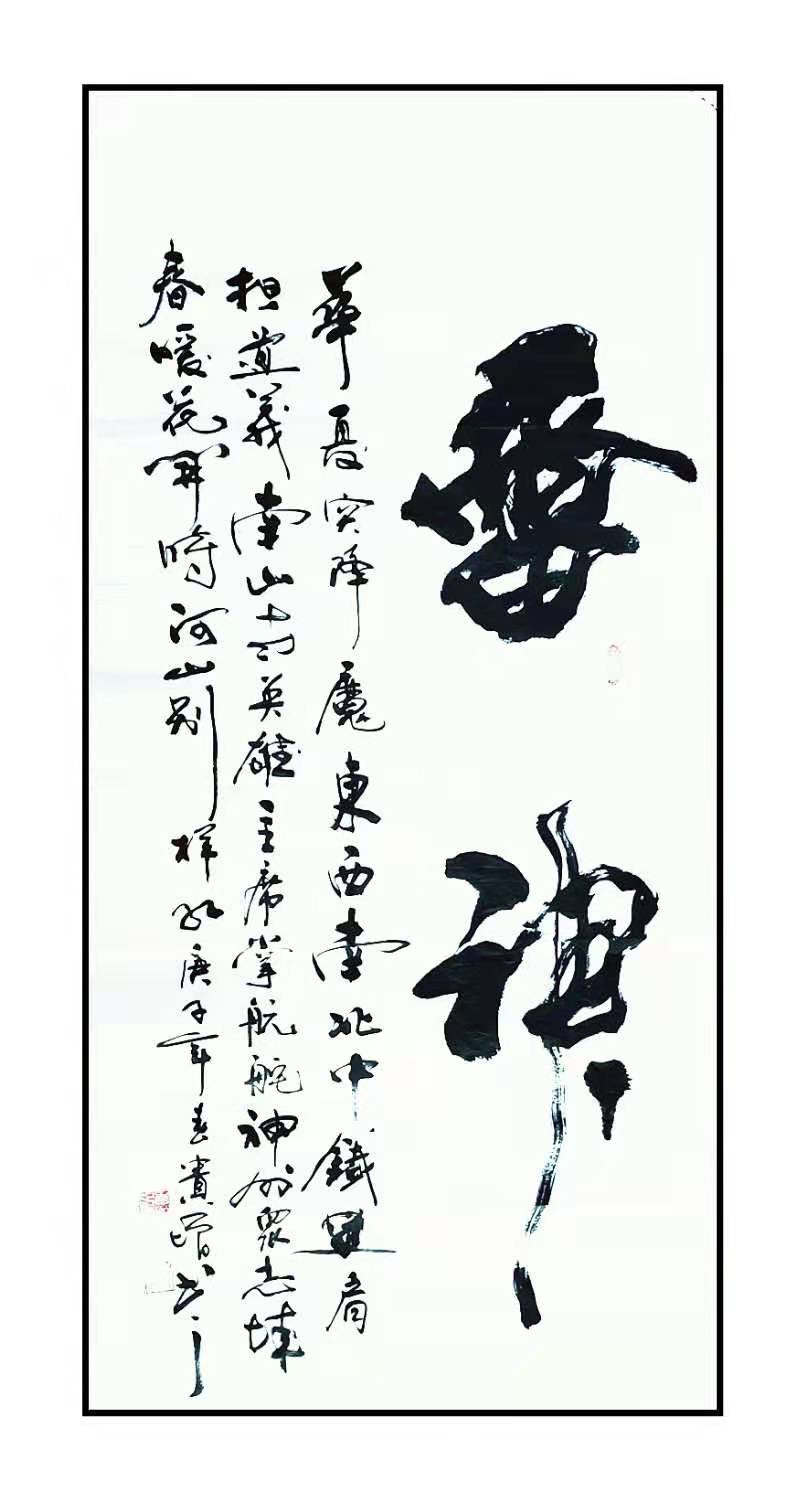 神
華夏突降魔東西南北中鐵肩
担道義南山英雄主席掌航舵神州眾志城
春暖花開時河山別樣紅庚子年春貴增书